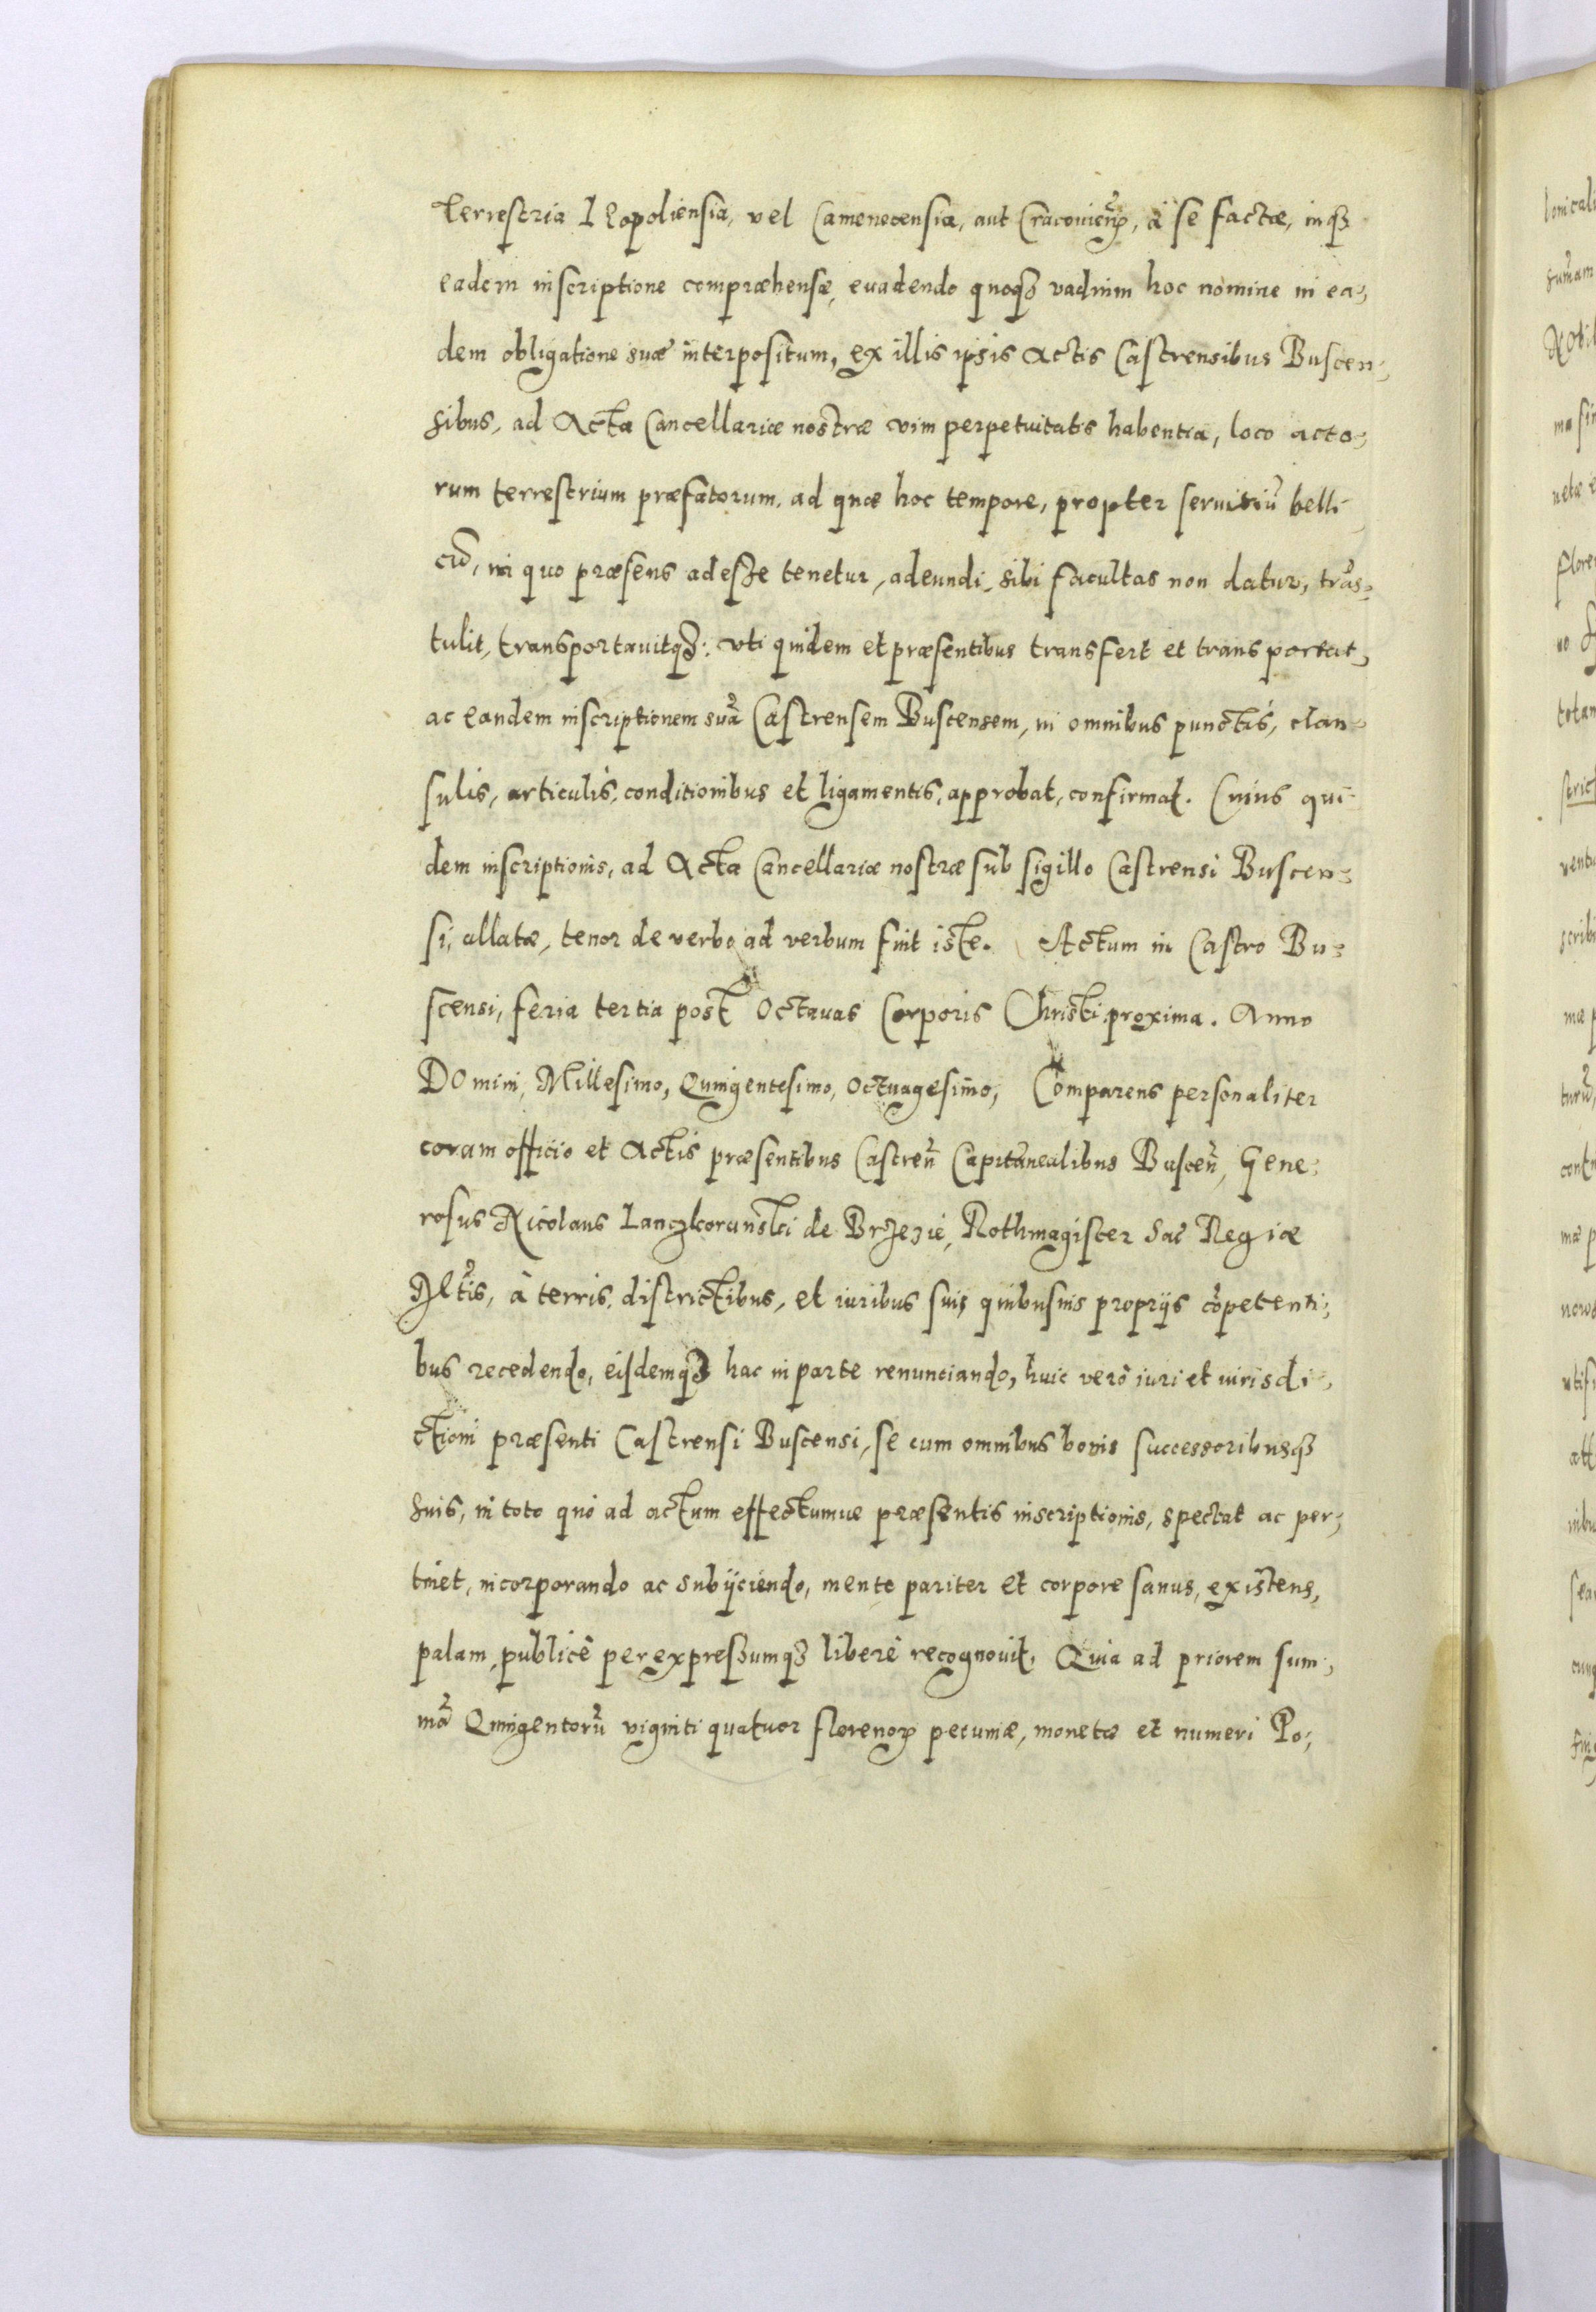 terrestria Leopoliensia, vel Camenecensia, aut Cracovień, à se factæ, inq3
eadem inscriptione compræhensæ, euadendo quoq3 vadium hoc nomine in ea-
dem obligatione suæ interpositum, ex illis ipsis Actis Castrensibus Buscen-
sibus, ad Acta Cancellariæ nostræ vim perpetuitatis habentia, loco acto-
rum terrestrium præfatorum, ad quæ hoc tempore, propter seruitiũ belli-
cũ, in quo præsens adesse tenetur, adeundi sibi facultas non datur, trãs-
tulit, transportauitq3: vti quidem et præsentibus transfert et transportat,
ac eandem inscriptionem suã Castrensem Buscensem, in omnibus punctis, clau-
sulis, articulis, conditionibus et ligamentis, approbat, confirmat. Cuius qui-
dem inscriptionis, ad Acta Cancellariæ nostræ sub sigillo Castrensi Buscen-
si, allatæ, tenor de verbo ad verbum fuit iste. Actum in Castro Bu-
scensi, feria tertia post Octauas Corporis Christi proxima. Anno
DOmini, Millesimo, Quingentesimo, Octuagesimo, Comparens personaliter
coram officio et Actis præsentibus Castreñ Capitanealibus Busceñ, Gene-
rosus Nicolaus Lanczkorunski de Brzezie, Rothmagister Sac Regiæ
Mtis, à terris, districtibus, et iuribus suis quibusuis proprijs cõpetenti-
bus recedendo, eisdemq3 hac in parte renunciando, huic verò iuri et iurisdi-
ctioni præsenti Castrensi Buscensi, se cum omnibus bonis successoribusq3
suis, in toto quò ad actum effectumue præsentis inscriptionis, spectat ac per-
tinet, incorporando ac subijciendo, mente pariter et corpore sanus, existens,
palam, publicè per expressumq3 liberè recognouit, Quia ad priorem sum-
mã Quingentorũ viginti quatuor florenoꝝ pecuniæ, monetæ et numeri Po-